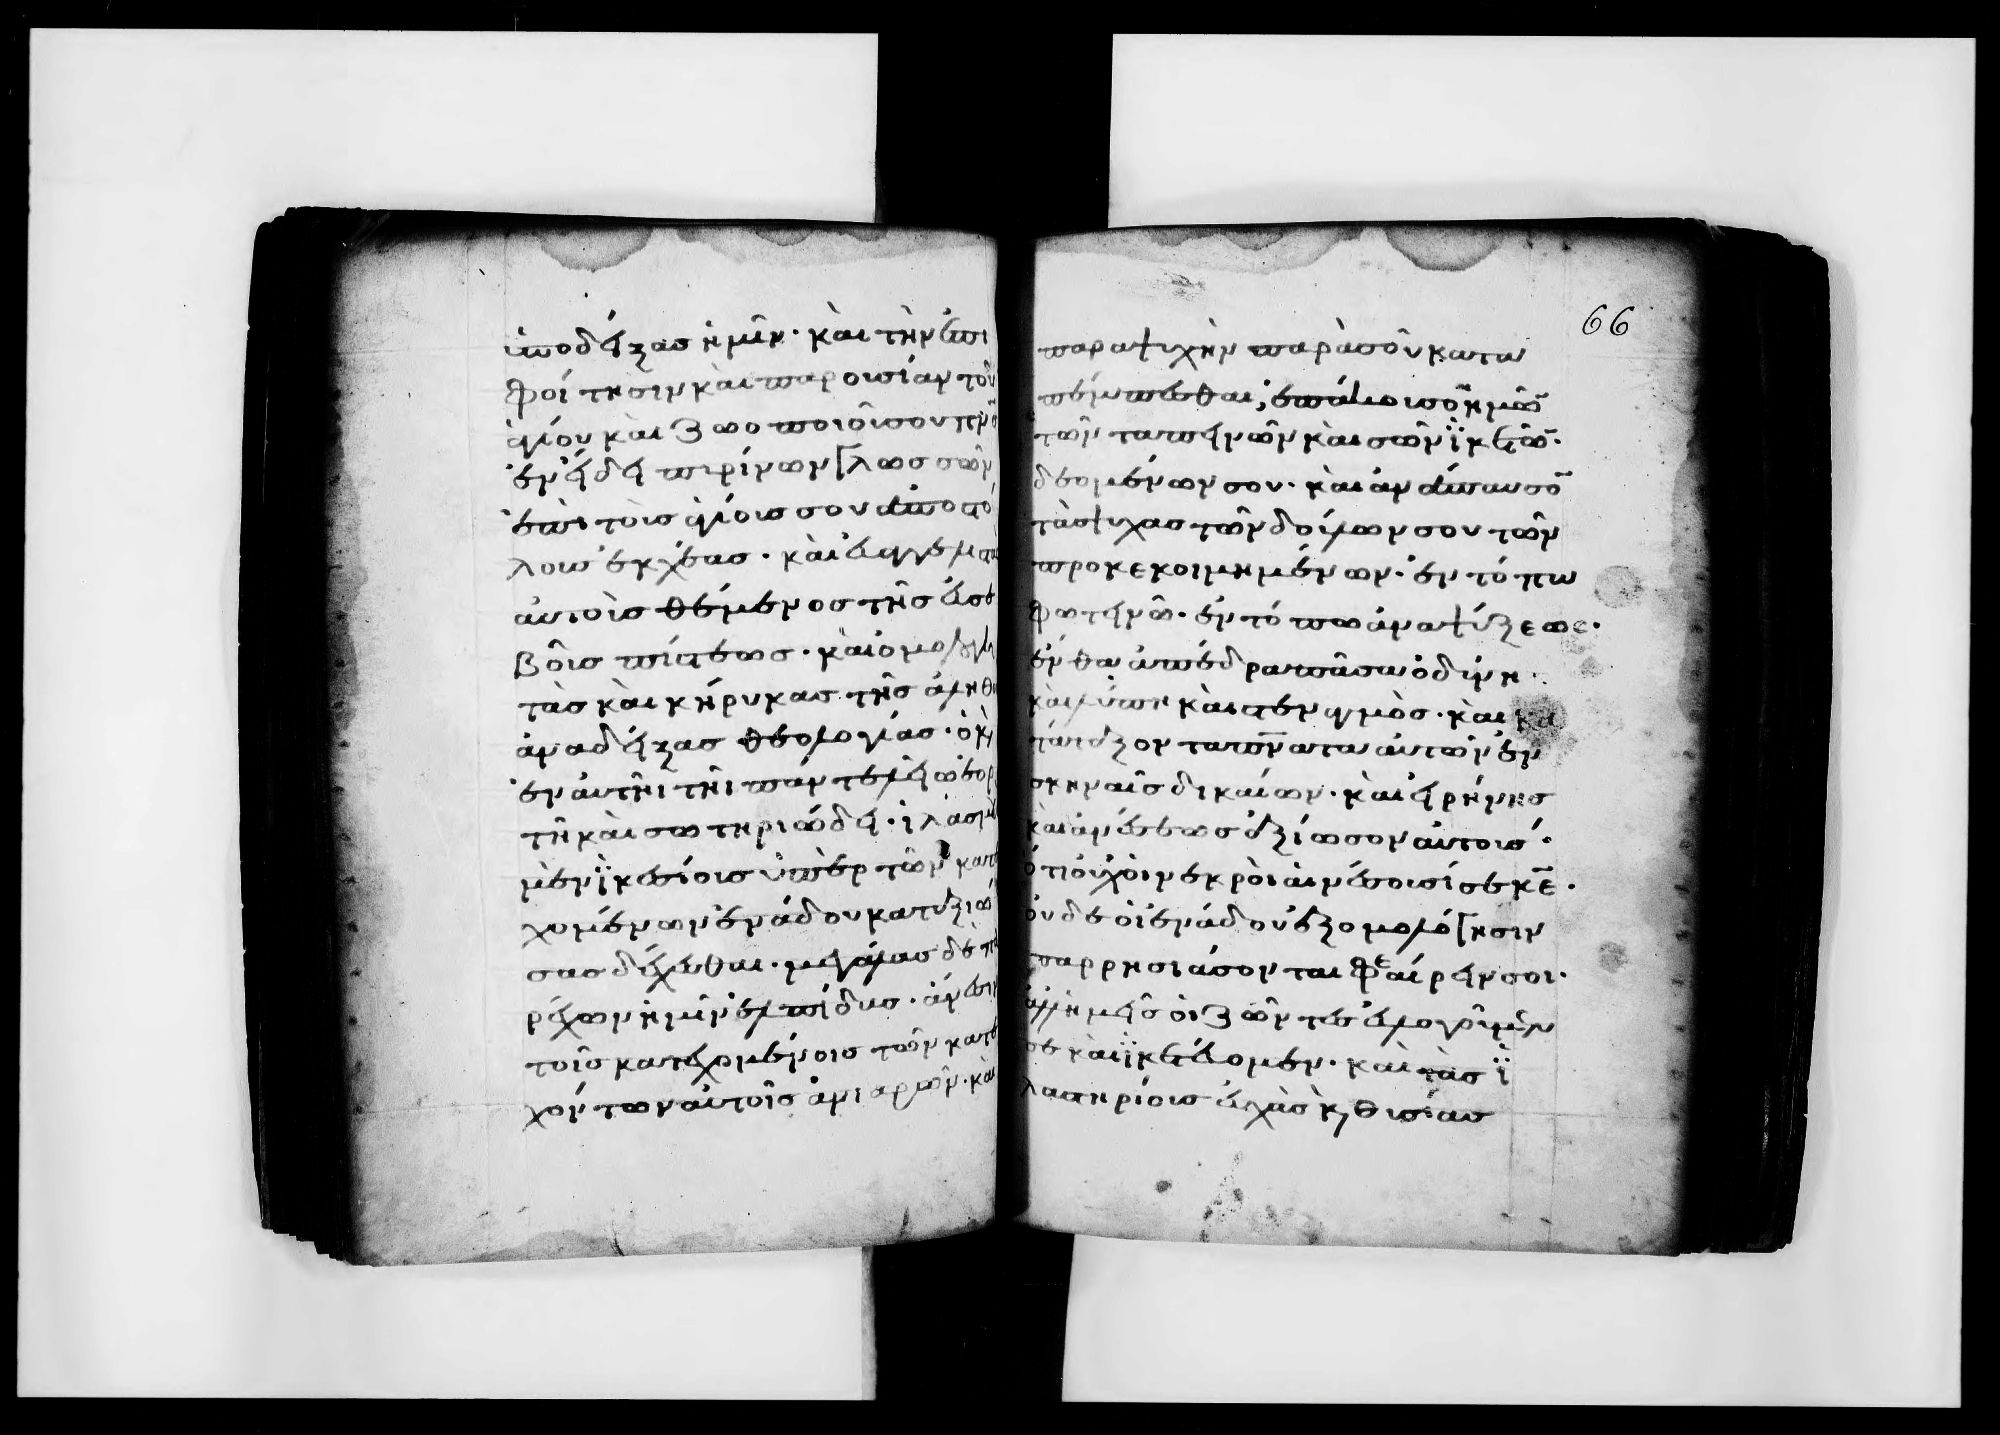 ὑποδείξας ἡμῖν· καὶ τὴν ἐπι
φοίτησιν καὶ παρουσίαν τοῦ
ἁγίου καὶ ζωοποιοῖσου πνς
ἐν εἴδει πιρίνων γλωσσῶν
ἐπι τοῖς ἁγίοις σου ἀποστό
λοις ἐκχέας· καὶ εὐαγγελιστὰ
ἀυτοὶς θέμενος τῆς εὐσε
βοῖς πίστεως· καὶ ὁμολογη
τὰς καὶ κήρυκας τῆς ἀληθι
ἀναδείξας θεολογίας· ὁ κ
ἐν ἀυτῆι τῆι παντελείω ἑορ
τῆ καὶ σωτηριώδει· ἱλασμ
μὲν ϊκεσίοις ὑπὲρ τῶν κατε
χομένων ἐν άδου καταξιώ
σας δέχεσθαι· μεγάλας δὲ πα
ρέχων ἡμῖν ἐλπίδας· άνεσιν
τοῖς κατεχομένοις τῶν κατε
χόντων αυτοῖς ἀνιαρῶν· καὶ
66
παραψυχὴν παρὰ σοῦ κατα
πέμπεσθαι; ἐπάκοισο ἡμῶν
τῶν ταπεινῶν καὶ σῶν ϊκετῶν·
δεομένων σου· καὶ ἀνάπαυσο
τὰς ψυχας τῶν δούλων σου τῶν
προκεκοιμημένων· ἐν τόπω
φωτεινῶ· ἐν τόπω ἀναψύξεως·
ένθα ἀπέδρα πᾶσα ὀδίνη·
καὶ λύπη καὶ στεναγμὸς· καὶ κα
τάταξον τα πνατα ἀυτῶν ἐν
σκηναῖς δικαίων· καὶ εἰρήνης
καὶ ἀνέσεως ἀξίωσον ἀυτοις·
ότι ὀυχ ὁι νεκροὶ αἰνέσοισί σε κε·
ὀυδὲ ὁι ἐν άδου ἐξομολόγησιν
παρρησιάσονται φέρειν σοι·
ἀλλ ἡμεῖς ὁι ζῶντες ἐυλογοῦμέν
σε καὶ ϊκετέυομεν· καὶ τὰς ϊ
λαστηρίοις ἐυχὰς κ θισίας